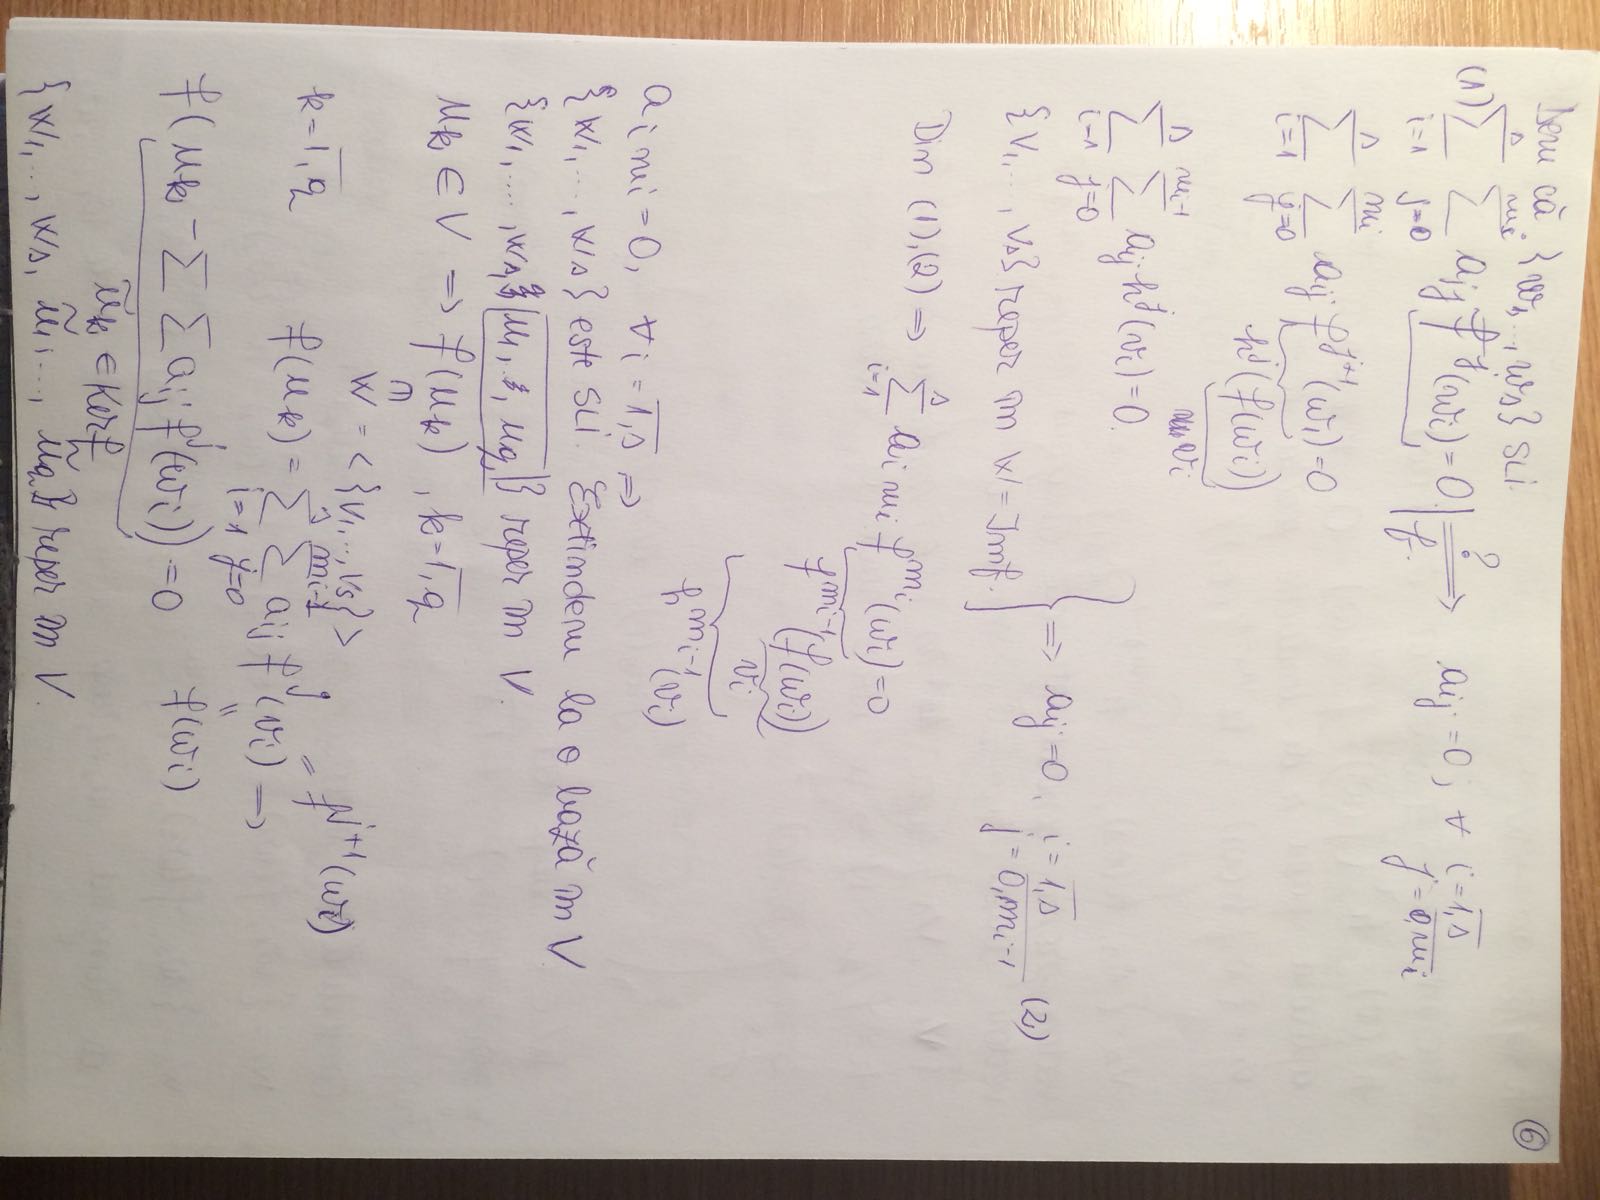 ⑥
Dem că {w1,..., ws} SLI.
(1) ∑_{i=1}^{s} ∑_{j=0}^{mi} aij f^j(wi) = 0 | f ⟹? aij = 0, ∀ i = 1,s
j = 0,mi
∑_{i=1}^{s} ∑_{j=0}^{mi} aij f^{j+1}(wi) = 0
h^j(f(wi))
vi
∑_{i=1}^{s} ∑_{j=0}^{mi-1} aij h^j(vi) = 0.
{v1,..., vs} reper în W = Imf. } ⟹ aij = 0, i = 1,s
j = 0,mi-1 (2)
Din (1),(2) ⟹ ∑_{i=1}^{s} ai mi f^{mi}(wi) = 0
f^{mi-1}(f(wi))
vi
h^{mi-1}(vi)
ai mi = 0, ∀ i = 1,s ⟹
{w1,..., ws} este SLI. Extindem la o bază în V
{w1,..., ws, u1, ..., uq} reper în V.
uk ∈ V ⟹ f(uk), k = 1,q
∩
W = < {v1,..., vs} >
k = 1,q f(uk) = ∑_{i=1}^{s} ∑_{j=0}^{mi-1} aij f^j(vi) ⟹
= f^{j+1}(wi)
" f(wi)
f(uk - ∑∑ aij f^j(wi)) = 0
ũk ∈ Kerf
{w1,..., ws, ũ1,..., ũq} reper în V.